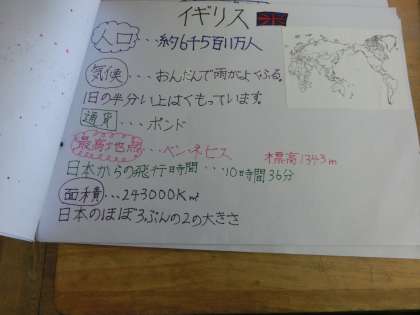 イギリス
人口・・・約6千5百11万人
気候・・・おんだんで雨がよくふる。
1日の半分い上はくもっています。
通貨・・・ポンド
最高地点・・・ベンネビス 標高1343m
日本からの飛行時間・・・10時間36分
面積・・・243000K㎡
日本のほぼ3ぶんの2の大きさ